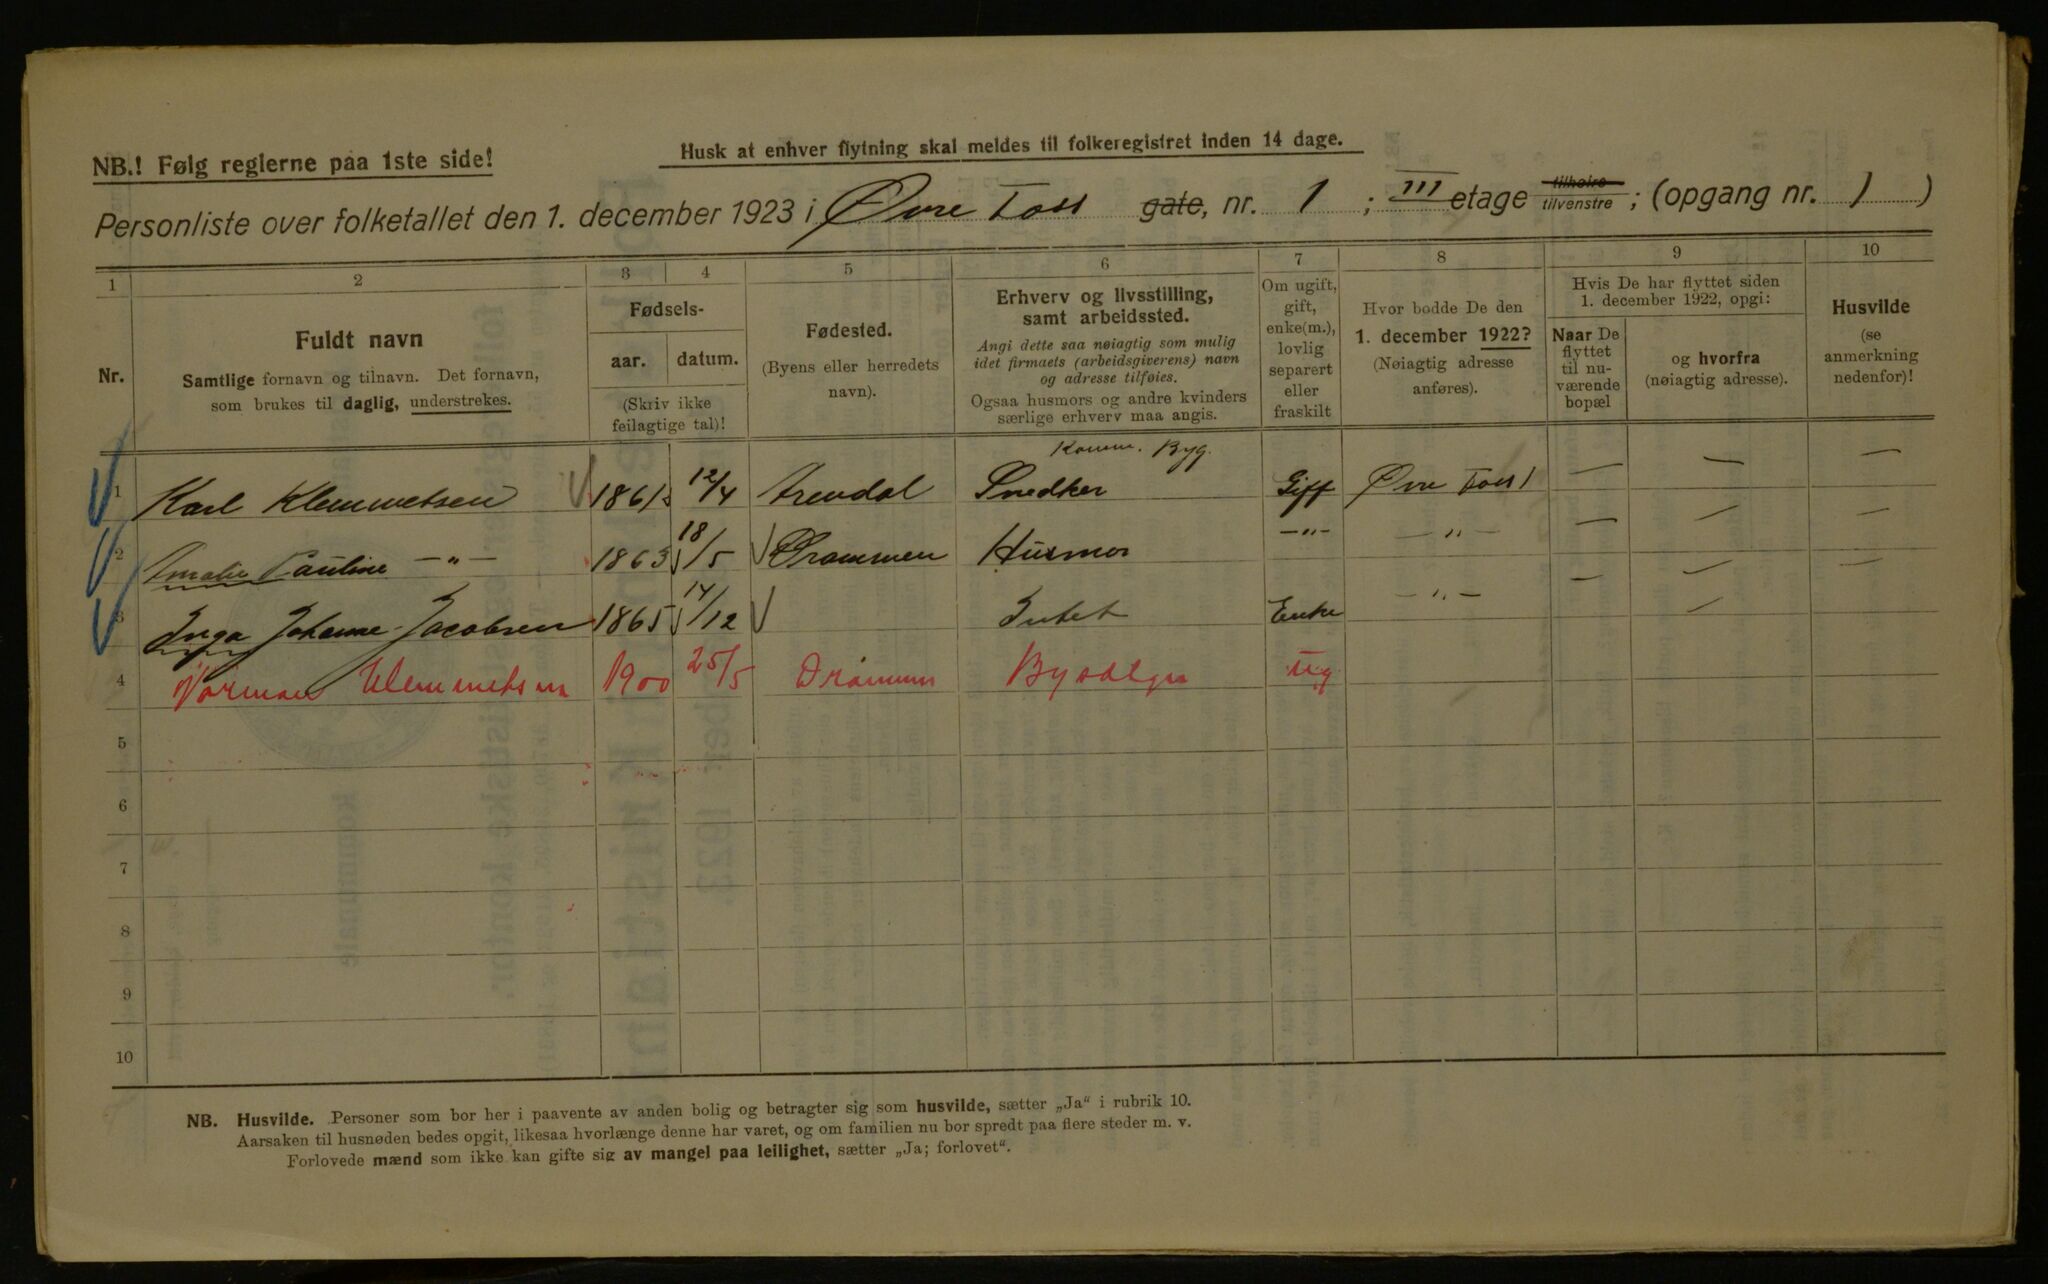 NB.! Følg reglerne paa 1ste side!
Husk at enhver flytning skal meldes til folkeregistret inden 14 dage.
Personliste over folketallet den 1. december 1923 i Øvre Foss gate, nr. 1 ; III etage tilhøire tilvenstre ; (opgang nr. 1 )
1 2 3 4 5 6 7 8 9 10
Nr.
Fuldt navn
Samtlige fornavn og tilnavn. Det fornavn,
som brukes til daglig, understrekes.
Fødsels-
aar. datum.
(Skriv ikke
feilagtige tal)!
Fødested.
(Byens eller herredets
navn).
Erhverv og livsstilling,
samt arbeidssted.
Angi dette saa nøiagtig som mulig
idet firmaets (arbeidsgiverens) navn
og adresse tilføies.
Ogsaa husmors og andre kvinders
særlige erhverv maa angis.
Om ugift,
gift,
enke(m.),
lovlig
separert
eller
fraskilt
Hvor bodde De den
1. december 1922?
(Nøiagtig adresse
anføres).
Hvis De har flyttet siden
1. december 1922, opgi:
Naar De
flyttet
til nu-
værende
bopæl
og hvorfra
(nøiagtig adresse).
Husvilde
(se
anmerkning
nedenfor)!
Komm. Byg.
1 Karl Klemmetsen 1861 12/4 Arendal Snedker Gift Øvre Foss 1 — — —
2 Amalie Pauline —"— 1863 18/5 Drammen Husmor —"— —"— — — —
3 Inga Johanne Jacobsen 1865 14/12 Intet Enke —"— — — —
4 Norman Klemmetsen 1900 25/5 Drammen Ug
5
6
7
8
9
10
NB. Husvilde. Personer som bor her i paavente av anden bolig og betragter sig som husvilde, sætter „Ja“ i rubrik 10.
Aarsaken til husnøden bedes opgit, likesaa hvorlænge denne har varet, og om familien nu bor spredt paa flere steder m. v.
Forlovede mænd som ikke kan gifte sig av mangel paa leilighet, sætter „Ja; forlovet“.